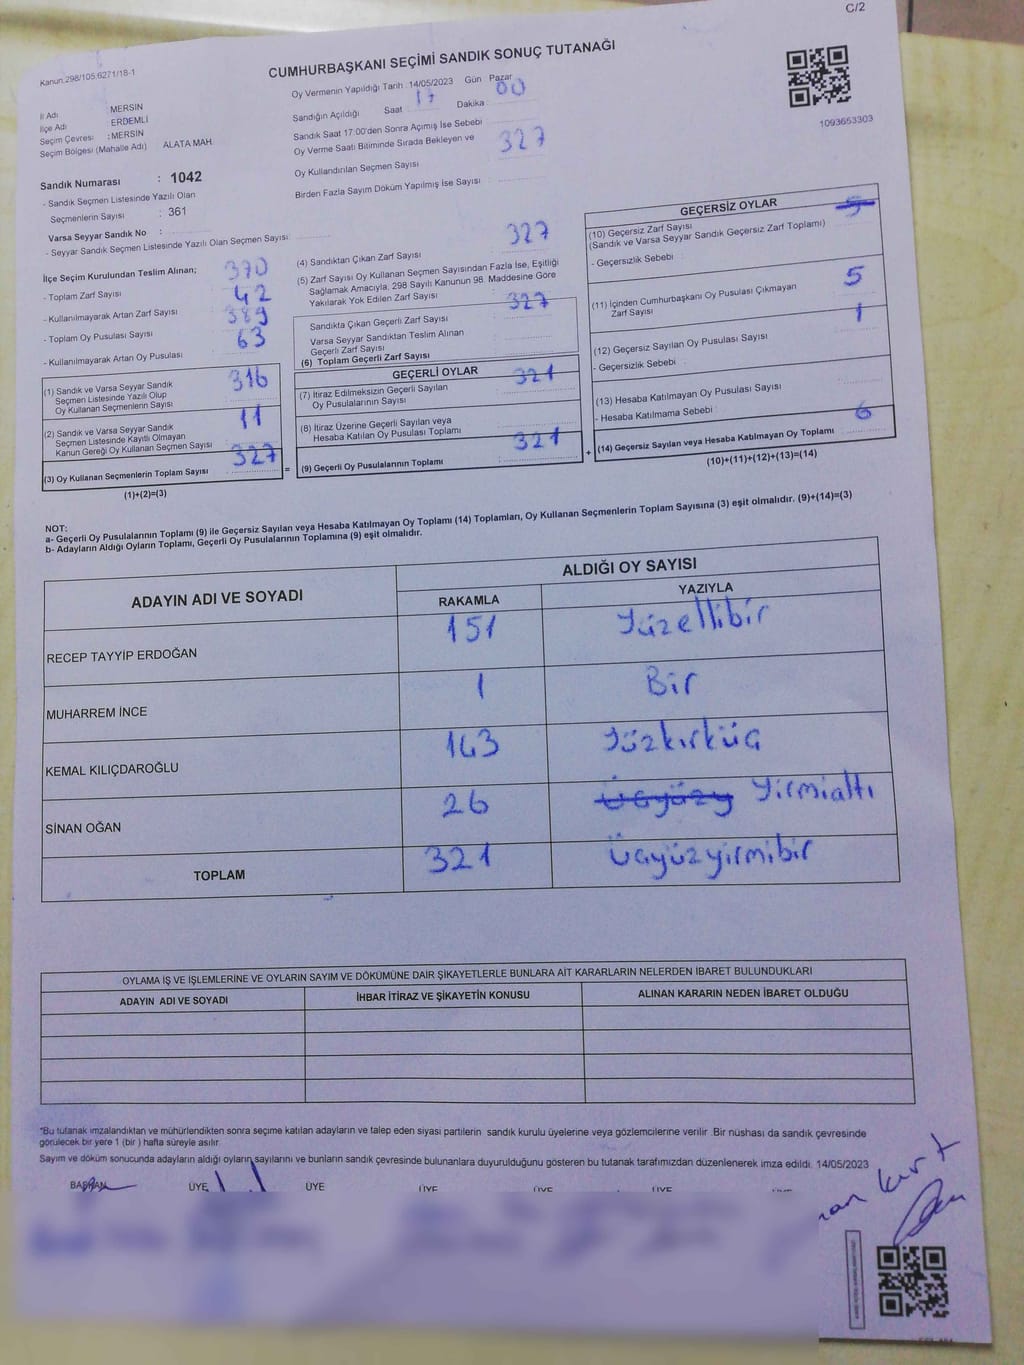 C/2
Kanun.298/105.6271/18-1
CUMHURBAŞKANI SEÇİMİ SANDIK SONUÇ TUTANAĞI
1093653303
İl Adı : MERSİN
İlçe Adı : ERDEMLİ
Seçim Çevresi : MERSİN
Seçim Bölgesi (Mahalle Adı) ALATA MAH.
Sandık Numarası : 1042
- Sandık Seçmen Listesinde Yazılı Olan
Seçmenlerin Sayısı : 361
Varsa Seyyar Sandık No :
- Seyyar Sandık Seçmen Listesinde Yazılı Olan Seçmen Sayısı:
Oy Vermenin Yapıldığı Tarih 14/05/2023 Gün Pazar
Sandığın Açıldığı Saat 17 Dakika 00
Sandık Saat 17:00'den Sonra Açımış İse Sebebi
Oy Verme Saati Bitiminde Sırada Bekleyen ve
Oy Kullandırılan Seçmen Sayısı 327
Birden Fazla Sayım Döküm Yapılmış İse Sayısı
İlçe Seçim Kurulundan Teslim Alınan;
- Toplam Zarf Sayısı 370
- Kullanılmayarak Artan Zarf Sayısı 42
- Toplam Oy Pusulası Sayısı 389
- Kullanılmayarak Artan Oy Pusulası 63
(1) Sandık ve Varsa Seyyar Sandık
Seçmen Listesinde Yazılı Olup
Oy Kullanan Seçmenlerin Sayısı 316
(2) Sandık ve Varsa Seyyar Sandık
Seçmen Listesinde Kayıtlı Olmayan
Kanun Gereği Oy Kullanan Seçmen Sayısı 11
(3) Oy Kullanan Seçmenlerin Toplam Sayısı 327
(1)+(2)=(3)
(4) Sandıktan Çıkan Zarf Sayısı 327
(5) Zarf Sayısı Oy Kullanan Seçmen Sayısından Fazla İse, Eşitliği
Sağlamak Amacıyla, 298 Sayılı Kanunun 98. Maddesine Göre
Yakılarak Yok Edilen Zarf Sayısı
Sandıkta Çıkan Geçerli Zarf Sayısı 327
Varsa Seyyar Sandıktan Teslim Alınan
Geçerli Zarf Sayısı
(6) Toplam Geçerli Zarf Sayısı
GEÇERLİ OYLAR
(7) İtiraz Edilmeksizin Geçerli Sayılan
Oy Pusulalarının Sayısı 321
(8) İtiraz Üzerine Geçerli Sayılan veya
Hesaba Katılan Oy Pusulası Toplamı
= (9) Geçerli Oy Pusulalarının Toplamı 321 +
GEÇERSİZ OYLAR
(10) Geçersiz Zarf Sayısı 5
(Sandık ve Varsa Seyyar Sandık Geçersiz Zarf Toplamı)
- Geçersizlik Sebebi
(11) İçinden Cumhurbaşkanı Oy Pusulası Çıkmayan
Zarf Sayısı 5
(12) Geçersiz Sayılan Oy Pusulası Sayısı 1
- Geçersizlik Sebebi
(13) Hesaba Katılmayan Oy Pusulası Sayısı
- Hesaba Katılmama Sebebi
(14) Geçersiz Sayılan veya Hesaba Katılmayan Oy Toplamı 6
(10)+(11)+(12)+(13)=(14)
NOT:
a- Geçerli Oy Pusulalarının Toplamı (9) ile Geçersiz Sayılan veya Hesaba Katılmayan Oy Toplamı (14) Toplamları, Oy Kullanan Seçmenlerin Toplam Sayısına (3) eşit olmalıdır. (9)+(14)=(3)
b- Adayların Aldığı Oyların Toplamı, Geçerli Oy Pusulalarının Toplamına (9) eşit olmalıdır.
ADAYIN ADI VE SOYADI ALDIĞI OY SAYISI
RAKAMLA YAZIYLA
RECEP TAYYİP ERDOĞAN 151 Yüzellibir
MUHARREM İNCE 1 Bir
KEMAL KILIÇDAROĞLU 143 Yüzkırküç
SİNAN OĞAN 26 Üçyüzy Yirmialtı
TOPLAM 321 Üçyüzyirmibir
OYLAMA İŞ VE İŞLEMLERİNE VE OYLARIN SAYIM VE DÖKÜMÜNE DAİR ŞİKAYETLERLE BUNLARA AİT KARARLARIN NELERDEN İBARET BULUNDUKLARI
ADAYIN ADI VE SOYADI İHBAR İTİRAZ VE ŞİKAYETİN KONUSU ALINAN KARARIN NEDEN İBARET OLDUĞU
*Bu tutanak imzalandıktan ve mühürlendikten sonra seçime katılan adayların ve talep eden siyasi partilerin sandık kurulu üyelerine veya gözlemcilerine verilir. Bir nüshası da sandık çevresinde
görülecek bir yere 1 (bir ) hafta süreyle asılır.
Sayım ve döküm sonucunda adayların aldığı oyların sayılarını ve bunların sandık çevresinde bulunanlara duyurulduğunu gösteren bu tutanak tarafımızdan düzenlenerek imza edildi. 14/05/2023
BAŞKAN ÜYE ÜYE ÜYE ÜYE ÜYE
kurt